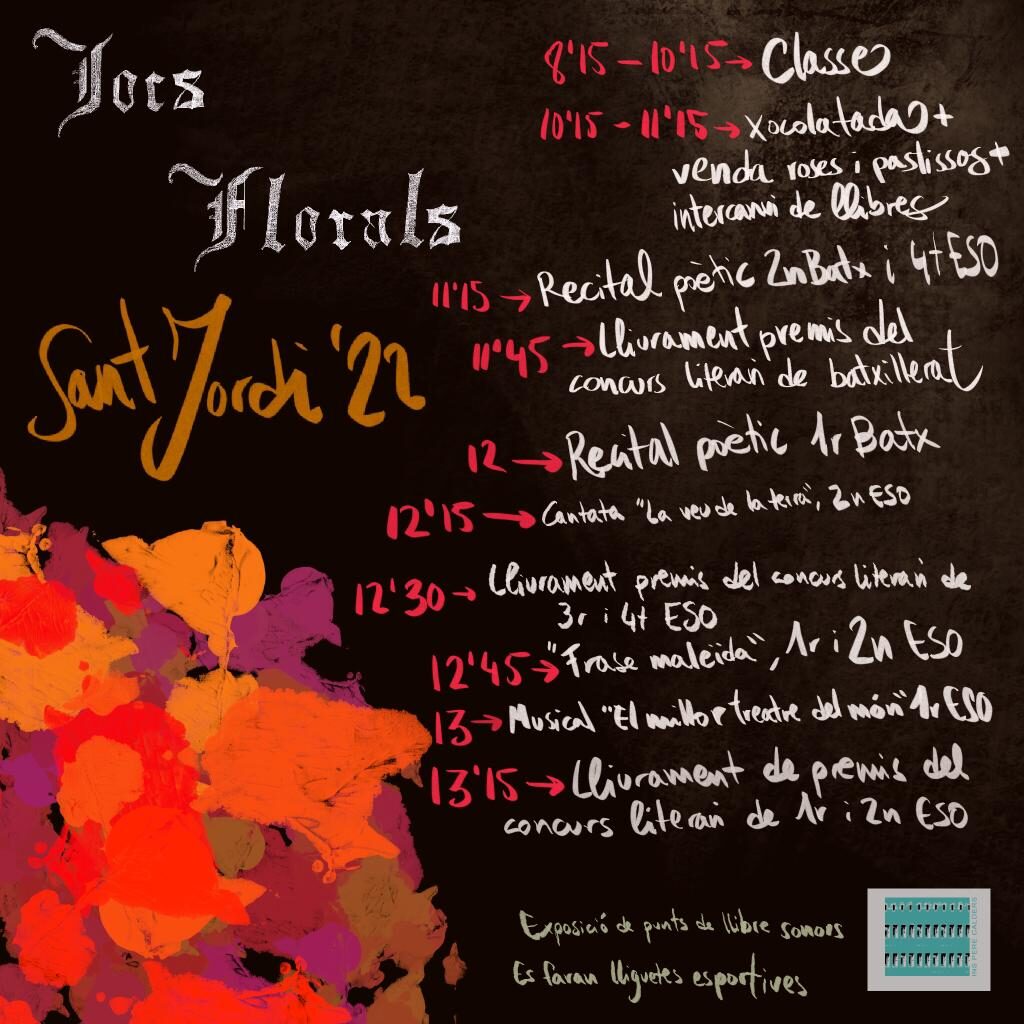 Jocs
Florals
Sant Jordi '22
8'15 - 10'15 → Classe
10'15 - 11'15 → Xocolatada +
venda roses i pastissos +
intercanvi de llibres
11'15 → Recital poètic 2n Batx i 4t ESO
11'45 → Lliurament premis del
concurs literari de batxillerat
12 → Recital poètic 1r Batx
12'15 → Cantata "La veu de la terra", 2n ESO
12'30 → Lliurament premis del concurs literari de
3r i 4t ESO
12'45 → "Frase maleïda", 1r i 2n ESO
13 → Musical "El millor treatre del món" 1r ESO
13'15 → Lliurament de premis del
concurs literari de 1r i 2n ESO
Exposició de punts de llibre sonors
Es faran lliguetes esportives
INS PERE CALDERS